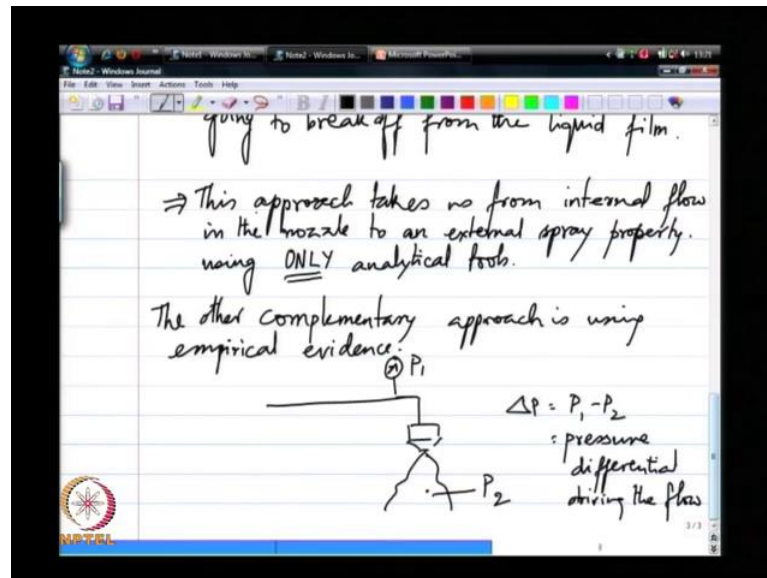 Note1 - Windows Jo... Note2 - Windows Jo... Microsoft PowerPoi... 13:21
Note2 - Windows Journal
File Edit View Insert Actions Tools Help
going to break off from the liquid film.
⇒ This approach takes us from internal flow
in the nozzle to an external spray property.
using ONLY analytical tools.
The other complementary approach is using
empirical evidence.
P₁
ΔP = P₁ - P₂
= pressure
differential
driving the flow
P₂
3/3
NPTEL